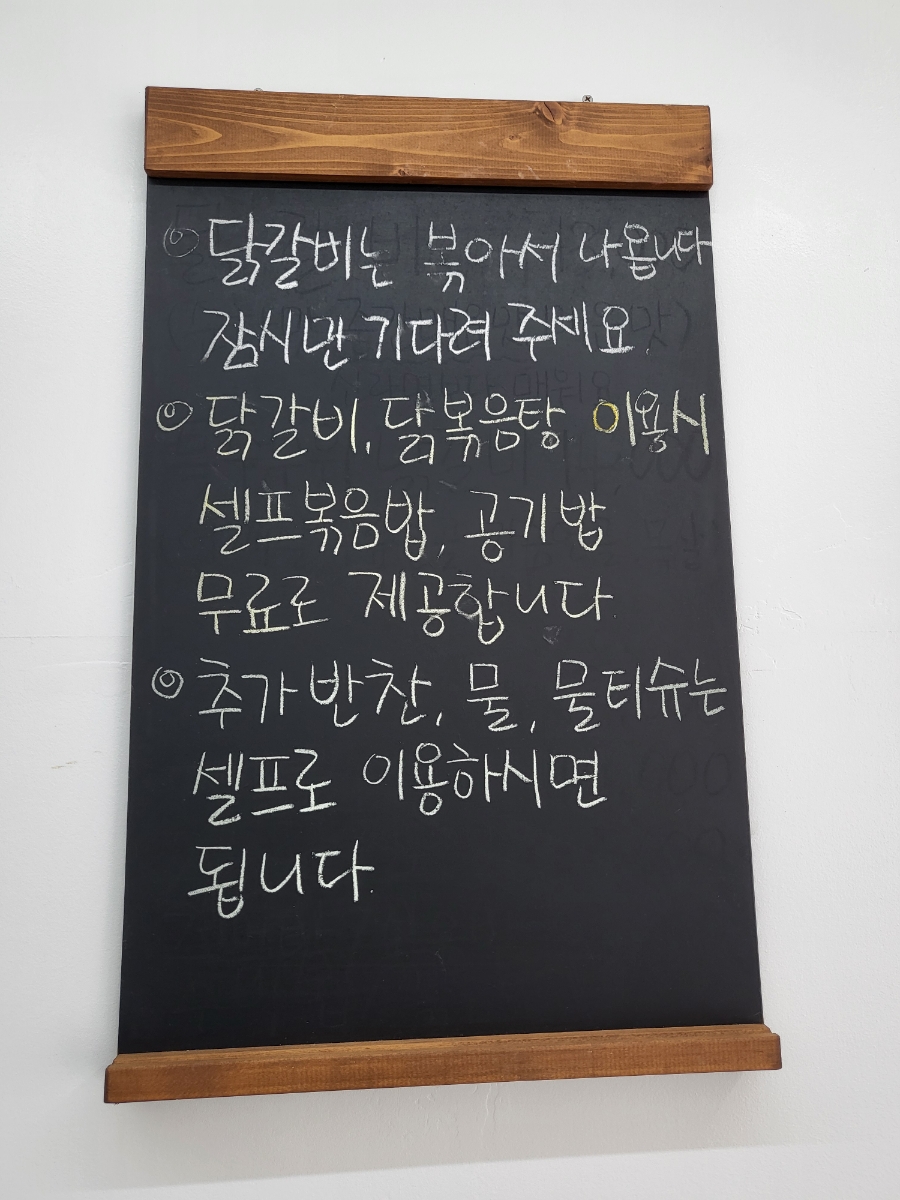 ◎ 닭갈비는 볶아서 나옵니다
잠시만 기다려 주세요
◎ 닭갈비, 닭볶음탕 이용시
셀프볶음밥, 공기밥
무료로 제공합니다
◎ 추가반찬, 물, 물티슈는
셀프로 이용하시면
됩니다.